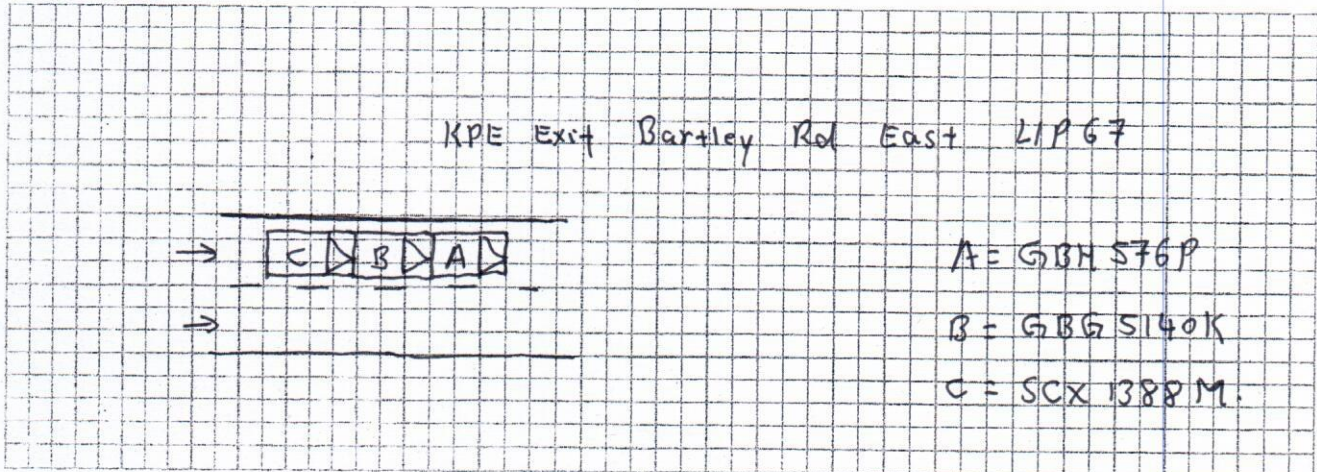 KPE Exit Bartley Rd East L/P 67
→ C B A
→
A = GBH 576P
B = GBG 5140K
C = SCX 1388 M.